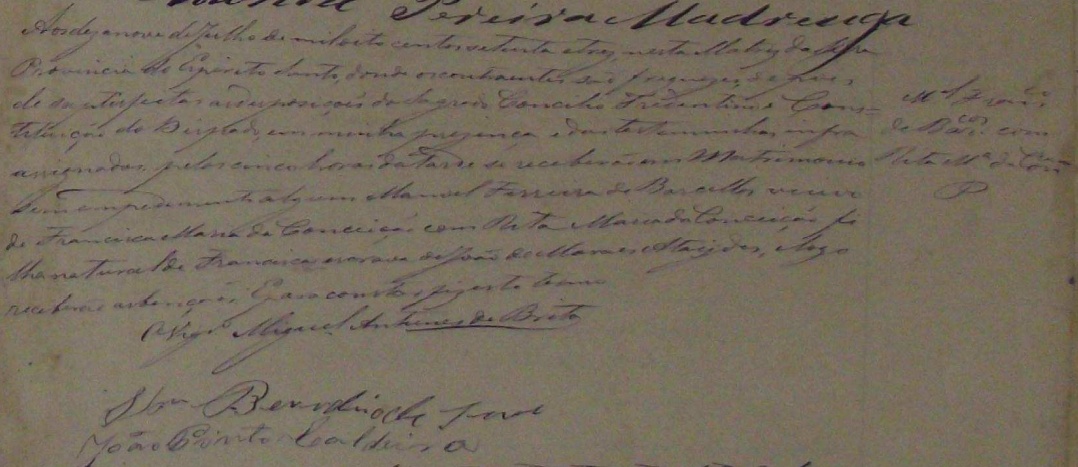 Pereira Madruga
Aos dezanove de Julho de mil oito centos setenta e tres, nesta Matriz da Serra
Provincia do Espirito Santo, donde os contraentes são freguezes, depois
de satisfeitas as disposições do Sagrado Concilio Tridentino e Cons=
tituição do Bispado, em minha presença e das testemunhas infra
assignadas, pelas cinco horas da tarde se receberão em Matrimonio
sem impedimento algum Manoel Ferreira de Barcellos viuvo
de Francisca Maria da Conceição com Rita Maria da Conceição, fi
lha natural de Francisca escrava de João de Moraes Ataydes, e logo
receberão as benções. E para constar fiz este termo
O Vigrº Miguel Antunes de Brito
Benedicto de
João Pinto Caldeira
Mel Ferrª
de Barcos com
Rita Mª da Conam
P